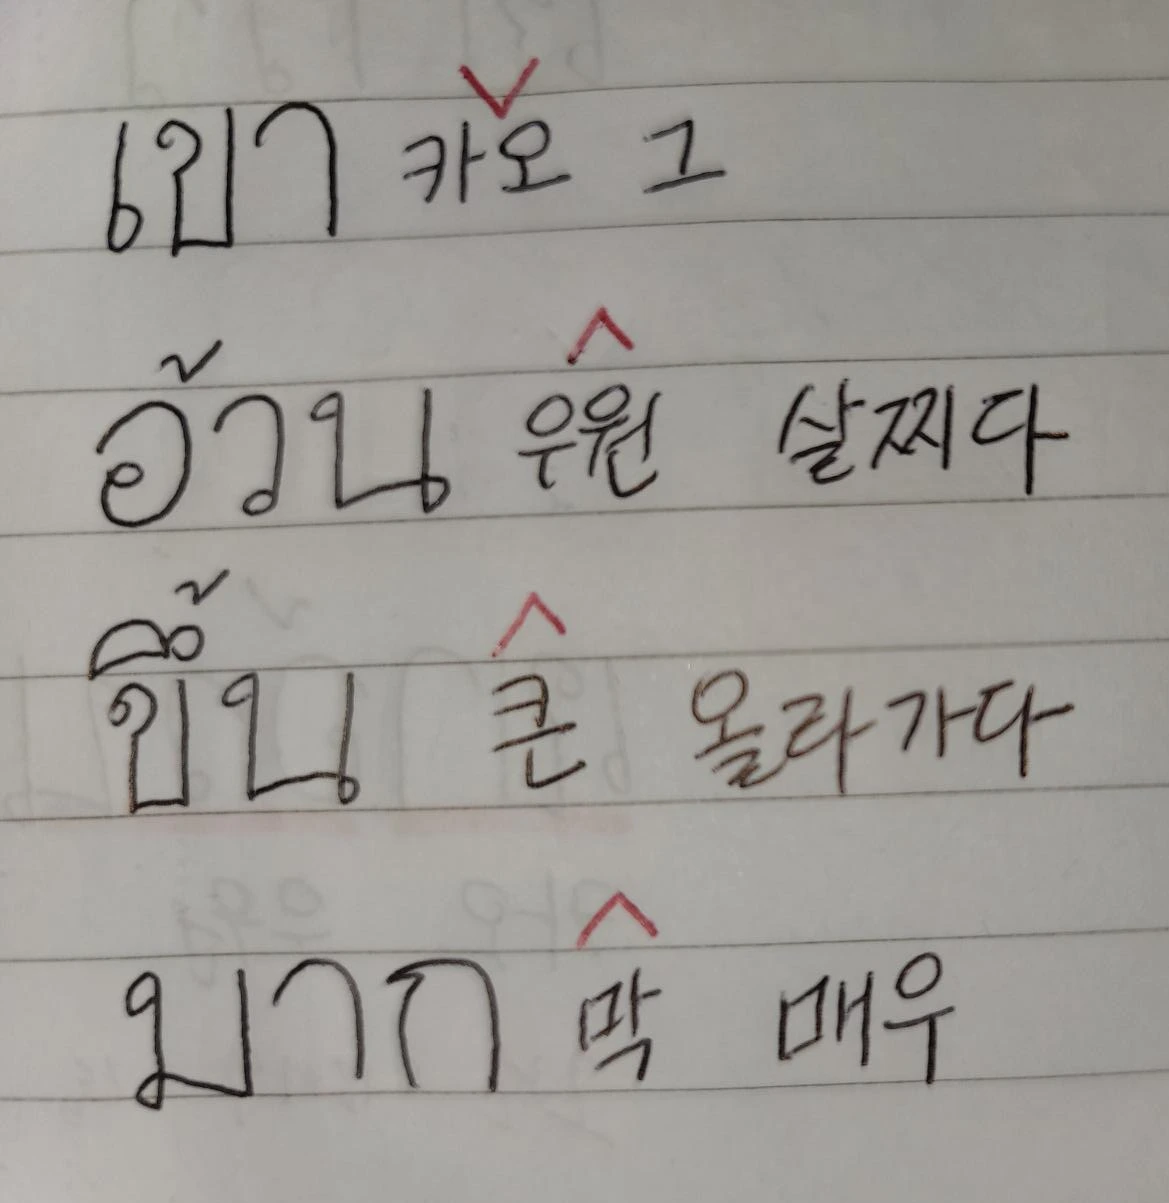 เขา 카오 그
อ้วน 우원 살찌다
ขึ้น 큰 올라가다
มาก 막 매우